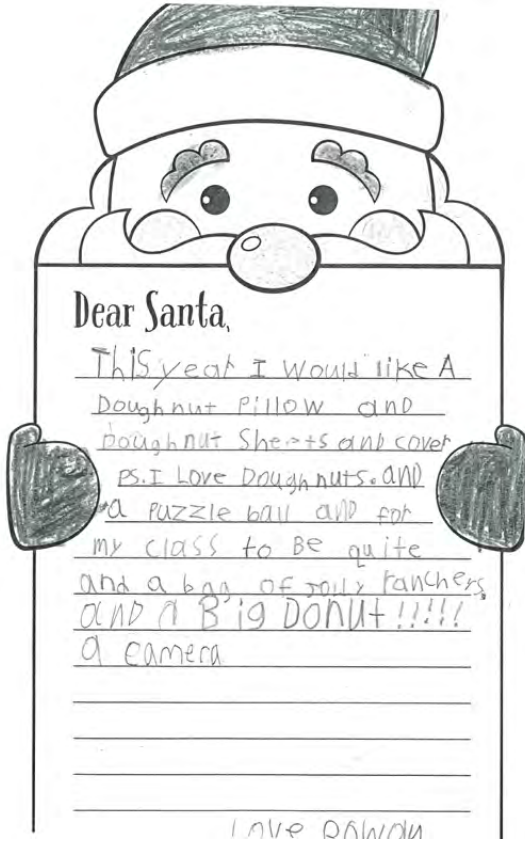 Dear Santa,
This year I would like A
Doughnut Pillow and
Doughnut Sheets and cover
PS. I Love Doughnuts. and
a puzzle ball and for
my class to Be quite
and a bag of Jolly ranchers
and a Big Donut!!!!!
a camera
Love